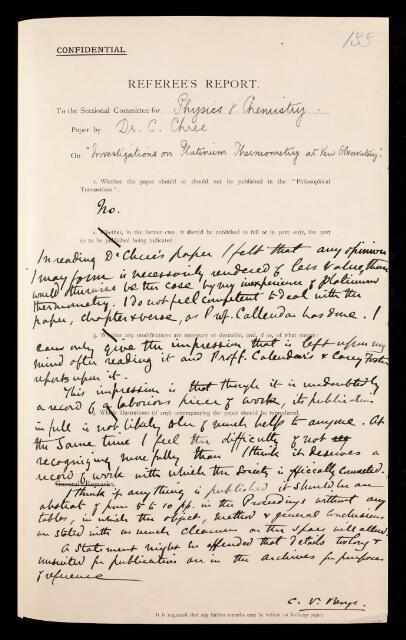 CONFIDENTIAL.
133
REFEREE'S REPORT.
To the Sectional Committee for Physics & Chemistry
Paper by Dr. C. Chree
On "Investigations on Platinum Thermometry at Kew Observatory".
1. Whether the paper should or should not be published in the "Philosophical
Transactions":
No.
2. Whether, in the former case, it should be published in full or in part only, the part
so to be published being indicated:
In reading Dr Chree's paper I felt that any opinion
I may form is necessarily rendered of less value than
would otherwise be the case by my inexperience of platinum
thermometry. I do not feel competent to deal with the
paper, chapter & verse, as Prof. Callendar has done. I
3. Whether any modifications are necessary or desirable, and, if so, of what nature:
can only give the impression that is left upon my
mind after reading it and Proff. Calendar's & Carey Foster
reports upon it.
This impression is that though it is undoubtedly
a record of a laborious piece of work, its publication
4. Which illustrations (if any) accompanying the paper should be reproduced.
in full is not likely to be of much help to anyone. At
the same time I feel the difficulty of not
recognizing more fully than I think it deserves a
record of work with which the Society is officially connected.
General Remarks.
I think if anything is published it should be an
abstract of from 5 to 10 pp. in the Proceedings without any
tables, in which the object, method & general conclusions
are stated with as much clearness as the space will allow.
A statement might be appended that details too long &
unsuited for publication are in the archives for purposes
of reference
C. V. Boys.
It is requested that any further remarks may be written on foolscap paper.